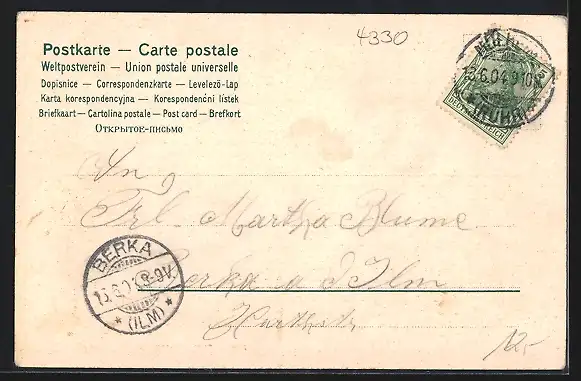 4330
Postkarte — Carte postale
Weltpostverein — Union postale universelle
Dopisnice — Correspondenzkarte — Levelező-Lap
Karta korespondencyjna — Korespondenční lístek
Briefkaart — Cartolina postale — Post card — Brefkort
Открытое-письмо
3.6.04.9-10
RUHR
An
Frl. Martha Blume
Berka a d Ilm
BERKA
8-9V.
(ILM)
12,-